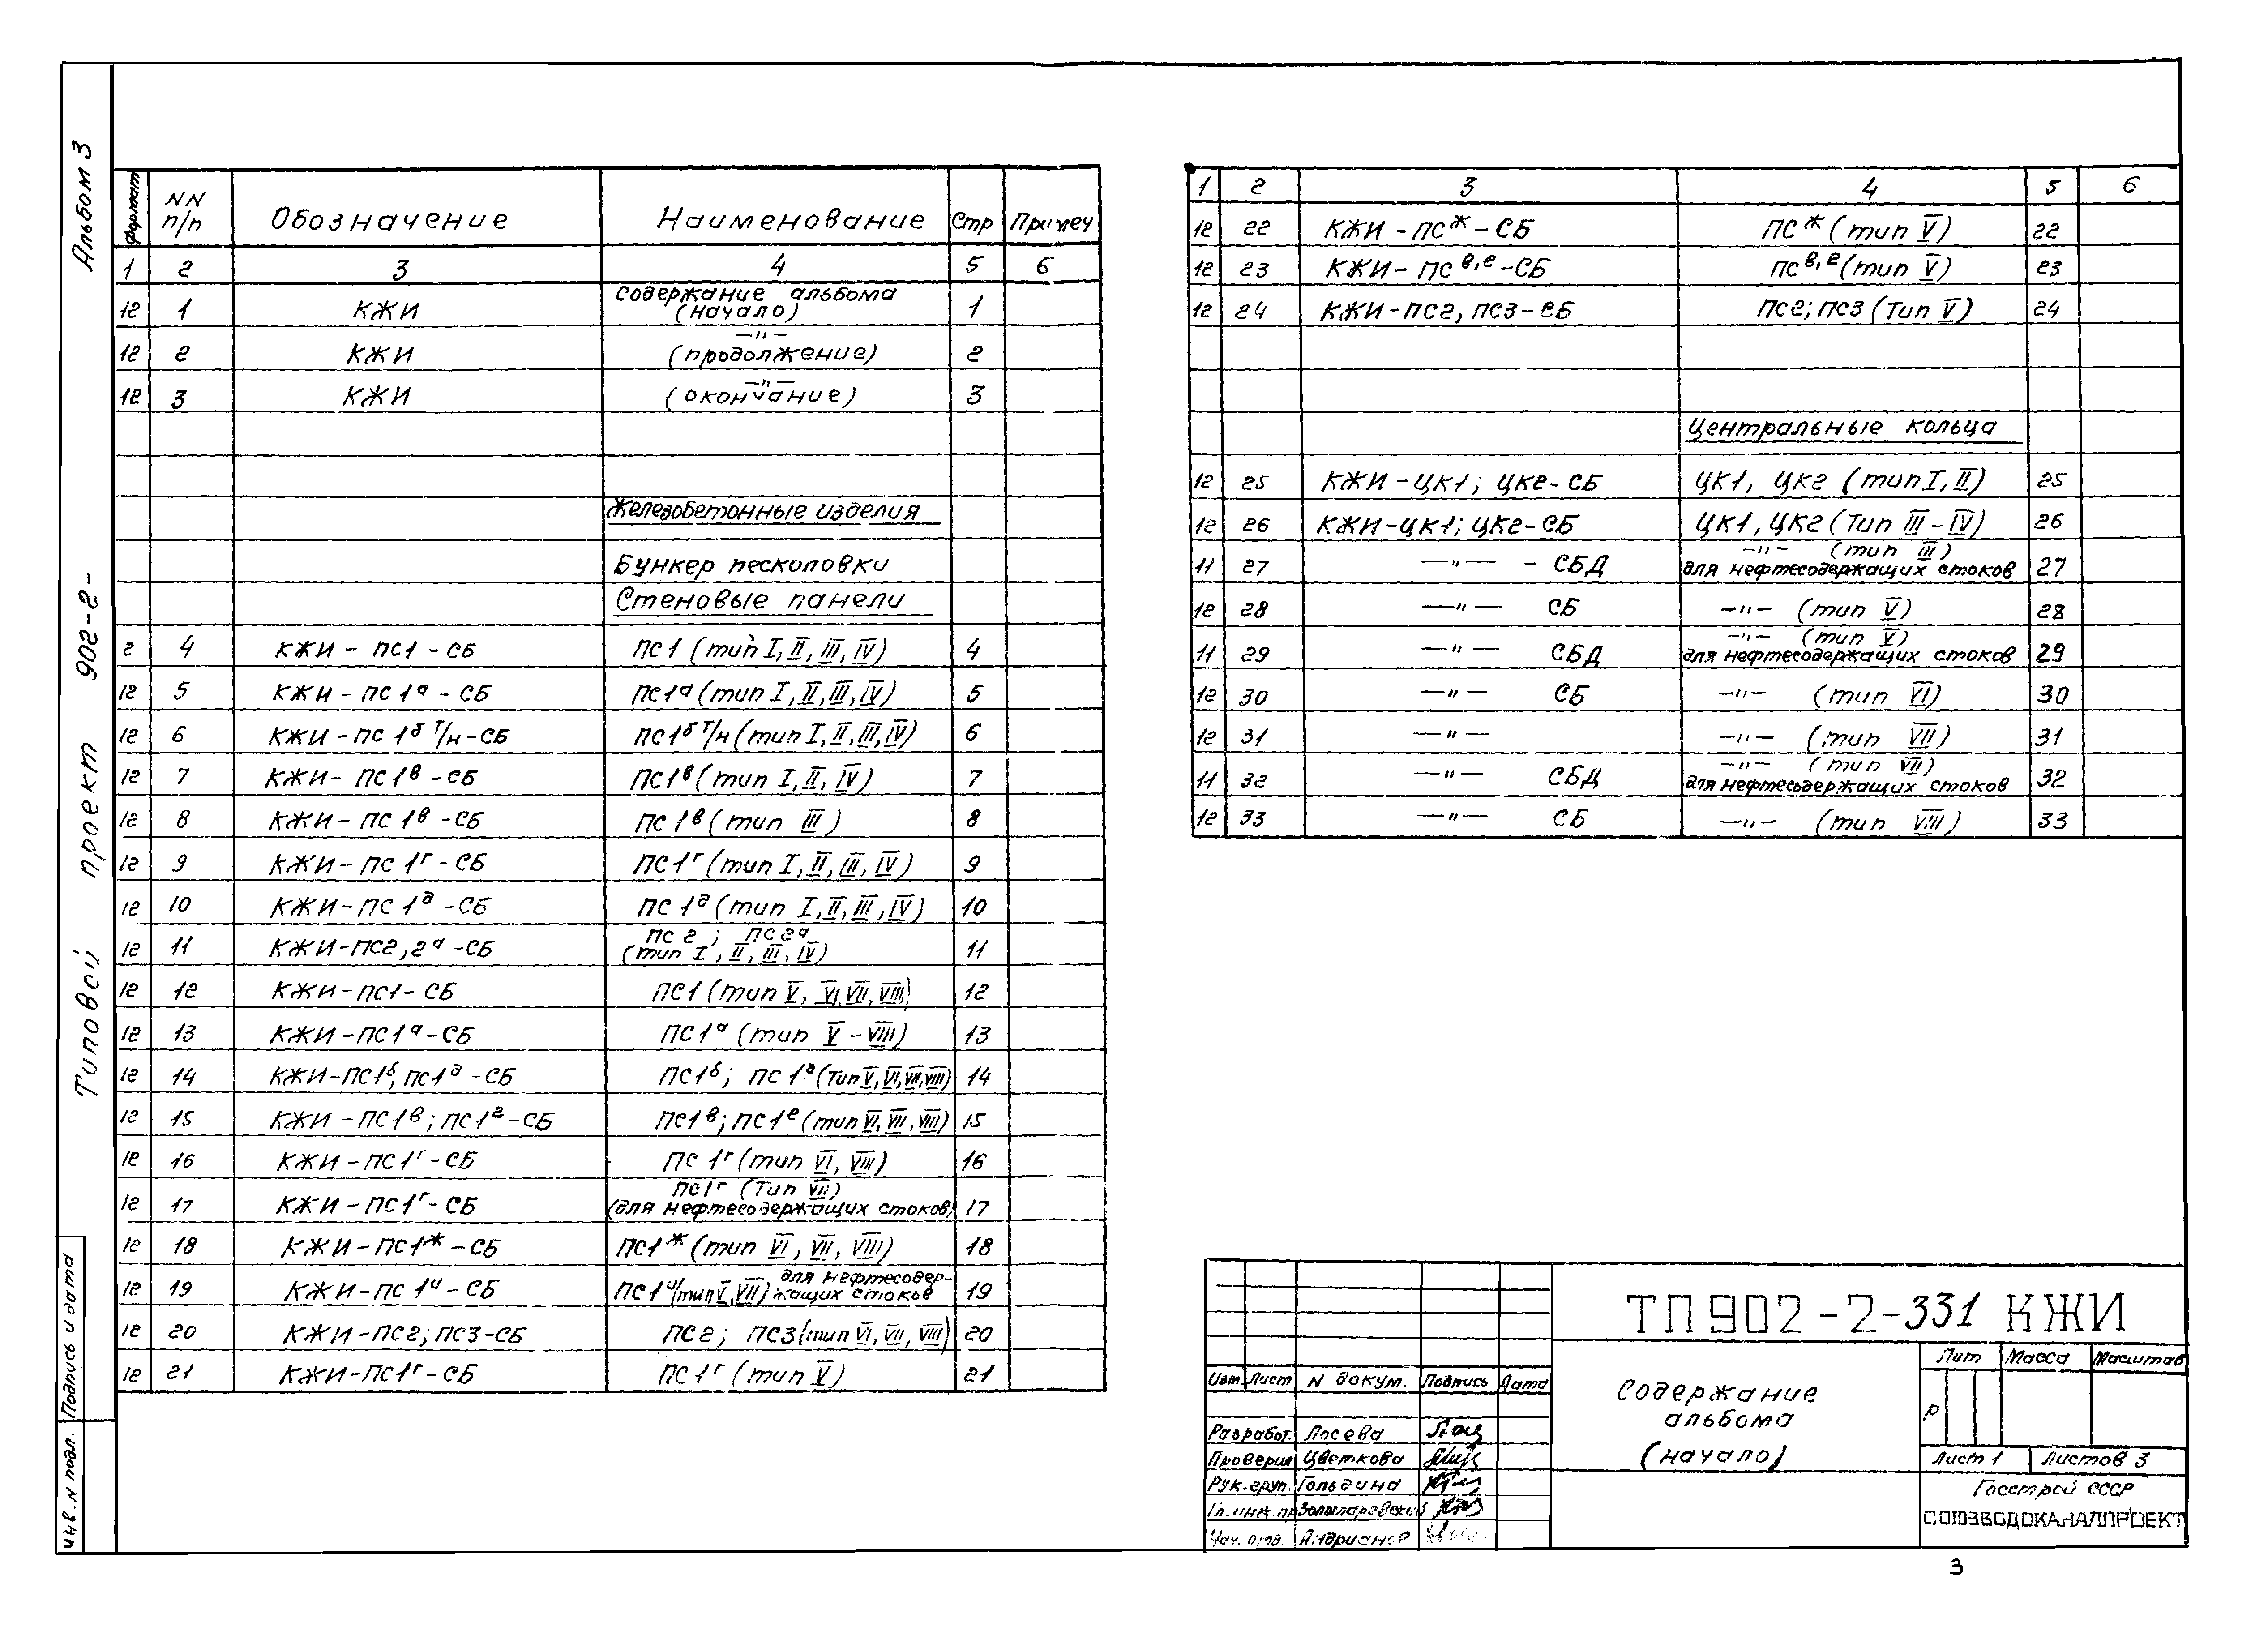 Альбом 3
Типовой проект 902-2-
Подпись и дата
Инв. N подл.
Формат | NN п/п | Обозначение | Наименование | Стр | Примеч
1 | 2 | 3 | 4 | 5 | 6
12 | 1 | КЖИ | Содержание альбома (начало) | 1
12 | 2 | КЖИ | —"— (продолжение) | 2
12 | 3 | КЖИ | —"— (окончание) | 3
Железобетонные изделия
Бункер песколовки
Стеновые панели
2 | 4 | КЖИ - ПС1 - СБ | ПС1 (тип I, II, III, IV) | 4
12 | 5 | КЖИ - ПС1а - СБ | ПС1а (тип I, II, III, IV) | 5
12 | 6 | КЖИ - ПС1б т/н - СБ | ПС1б т/н (тип I, II, III, IV) | 6
12 | 7 | КЖИ - ПС1в - СБ | ПС1в (тип I, II, IV) | 7
12 | 8 | КЖИ - ПС1в - СБ | ПС1в (тип III) | 8
12 | 9 | КЖИ - ПС1г - СБ | ПС1г (тип I, II, III, IV) | 9
12 | 10 | КЖИ - ПС1д - СБ | ПС1д (тип I, II, III, IV) | 10
12 | 11 | КЖИ - ПС2, 2а - СБ | ПС2; ПС2а (тип I, II, III, IV) | 11
12 | 12 | КЖИ - ПС1 - СБ | ПС1 (тип V, VI, VII, VIII) | 12
12 | 13 | КЖИ - ПС1а - СБ | ПС1а (тип V - VIII) | 13
12 | 14 | КЖИ - ПС1б, ПС1д - СБ | ПС1б; ПС1д (Тип V, VI, VII, VIII) | 14
12 | 15 | КЖИ - ПС1в; ПС1е - СБ | ПС1в; ПС1е (тип VI, VII, VIII) | 15
12 | 16 | КЖИ - ПС1г - СБ | ПС1г (тип VI, VIII) | 16
12 | 17 | КЖИ - ПС1г - СБ | ПС1г (Тип VII) (для нефтесодержащих стоков) | 17
12 | 18 | КЖИ - ПС1ж - СБ | ПС1ж (тип VI, VII, VIII) | 18
12 | 19 | КЖИ - ПС1и - СБ | ПС1и (тип V, VII) для нефтесодержащих стоков | 19
12 | 20 | КЖИ - ПС2; ПС3 - СБ | ПС2; ПС3 (тип VI, VII, VIII) | 20
12 | 21 | КЖИ - ПС1г - СБ | ПС1г (тип V) | 21
1 | 2 | 3 | 4 | 5 | 6
12 | 22 | КЖИ - ПСж - СБ | ПСж (тип V) | 22
12 | 23 | КЖИ - ПСв,е - СБ | ПСв,е (тип V) | 23
12 | 24 | КЖИ - ПС2, ПС3 - СБ | ПС2; ПС3 (Тип V) | 24
Центральные кольца
12 | 25 | КЖИ - ЦК1; ЦК2 - СБ | ЦК1, ЦК2 (тип I, II) | 25
12 | 26 | КЖИ - ЦК1; ЦК2 - СБ | ЦК1, ЦК2 (Тип III - IV) | 26
11 | 27 | —"— - СБД | —"— (тип III) для нефтесодержащих стоков | 27
12 | 28 | —"— СБ | —"— (тип V) | 28
11 | 29 | —"— СБД | —"— (тип V) для нефтесодержащих стоков | 29
12 | 30 | —"— СБ | —"— (тип VI) | 30
12 | 31 | —"— | —"— (тип VII) | 31
11 | 32 | —"— СБД | —"— (тип VII) для нефтесодержащих стоков | 32
12 | 33 | —"— СБ | —"— (тип VIII) | 33
ТП 902-2-331 КЖИ
Изм. Лист N докум. Подпись Дата
Разработ. Лосева
Проверил Цветкова
Рук. груп. Гольдина
Гл. инж. пр
Нач. отд. Андрианов
Содержание
альбома
(начало)
Лит Масса Масштаб
Р
Лист 1 Листов 3
Госстрой СССР
СОЮЗВОДОКАНАЛПРОЕКТ
3